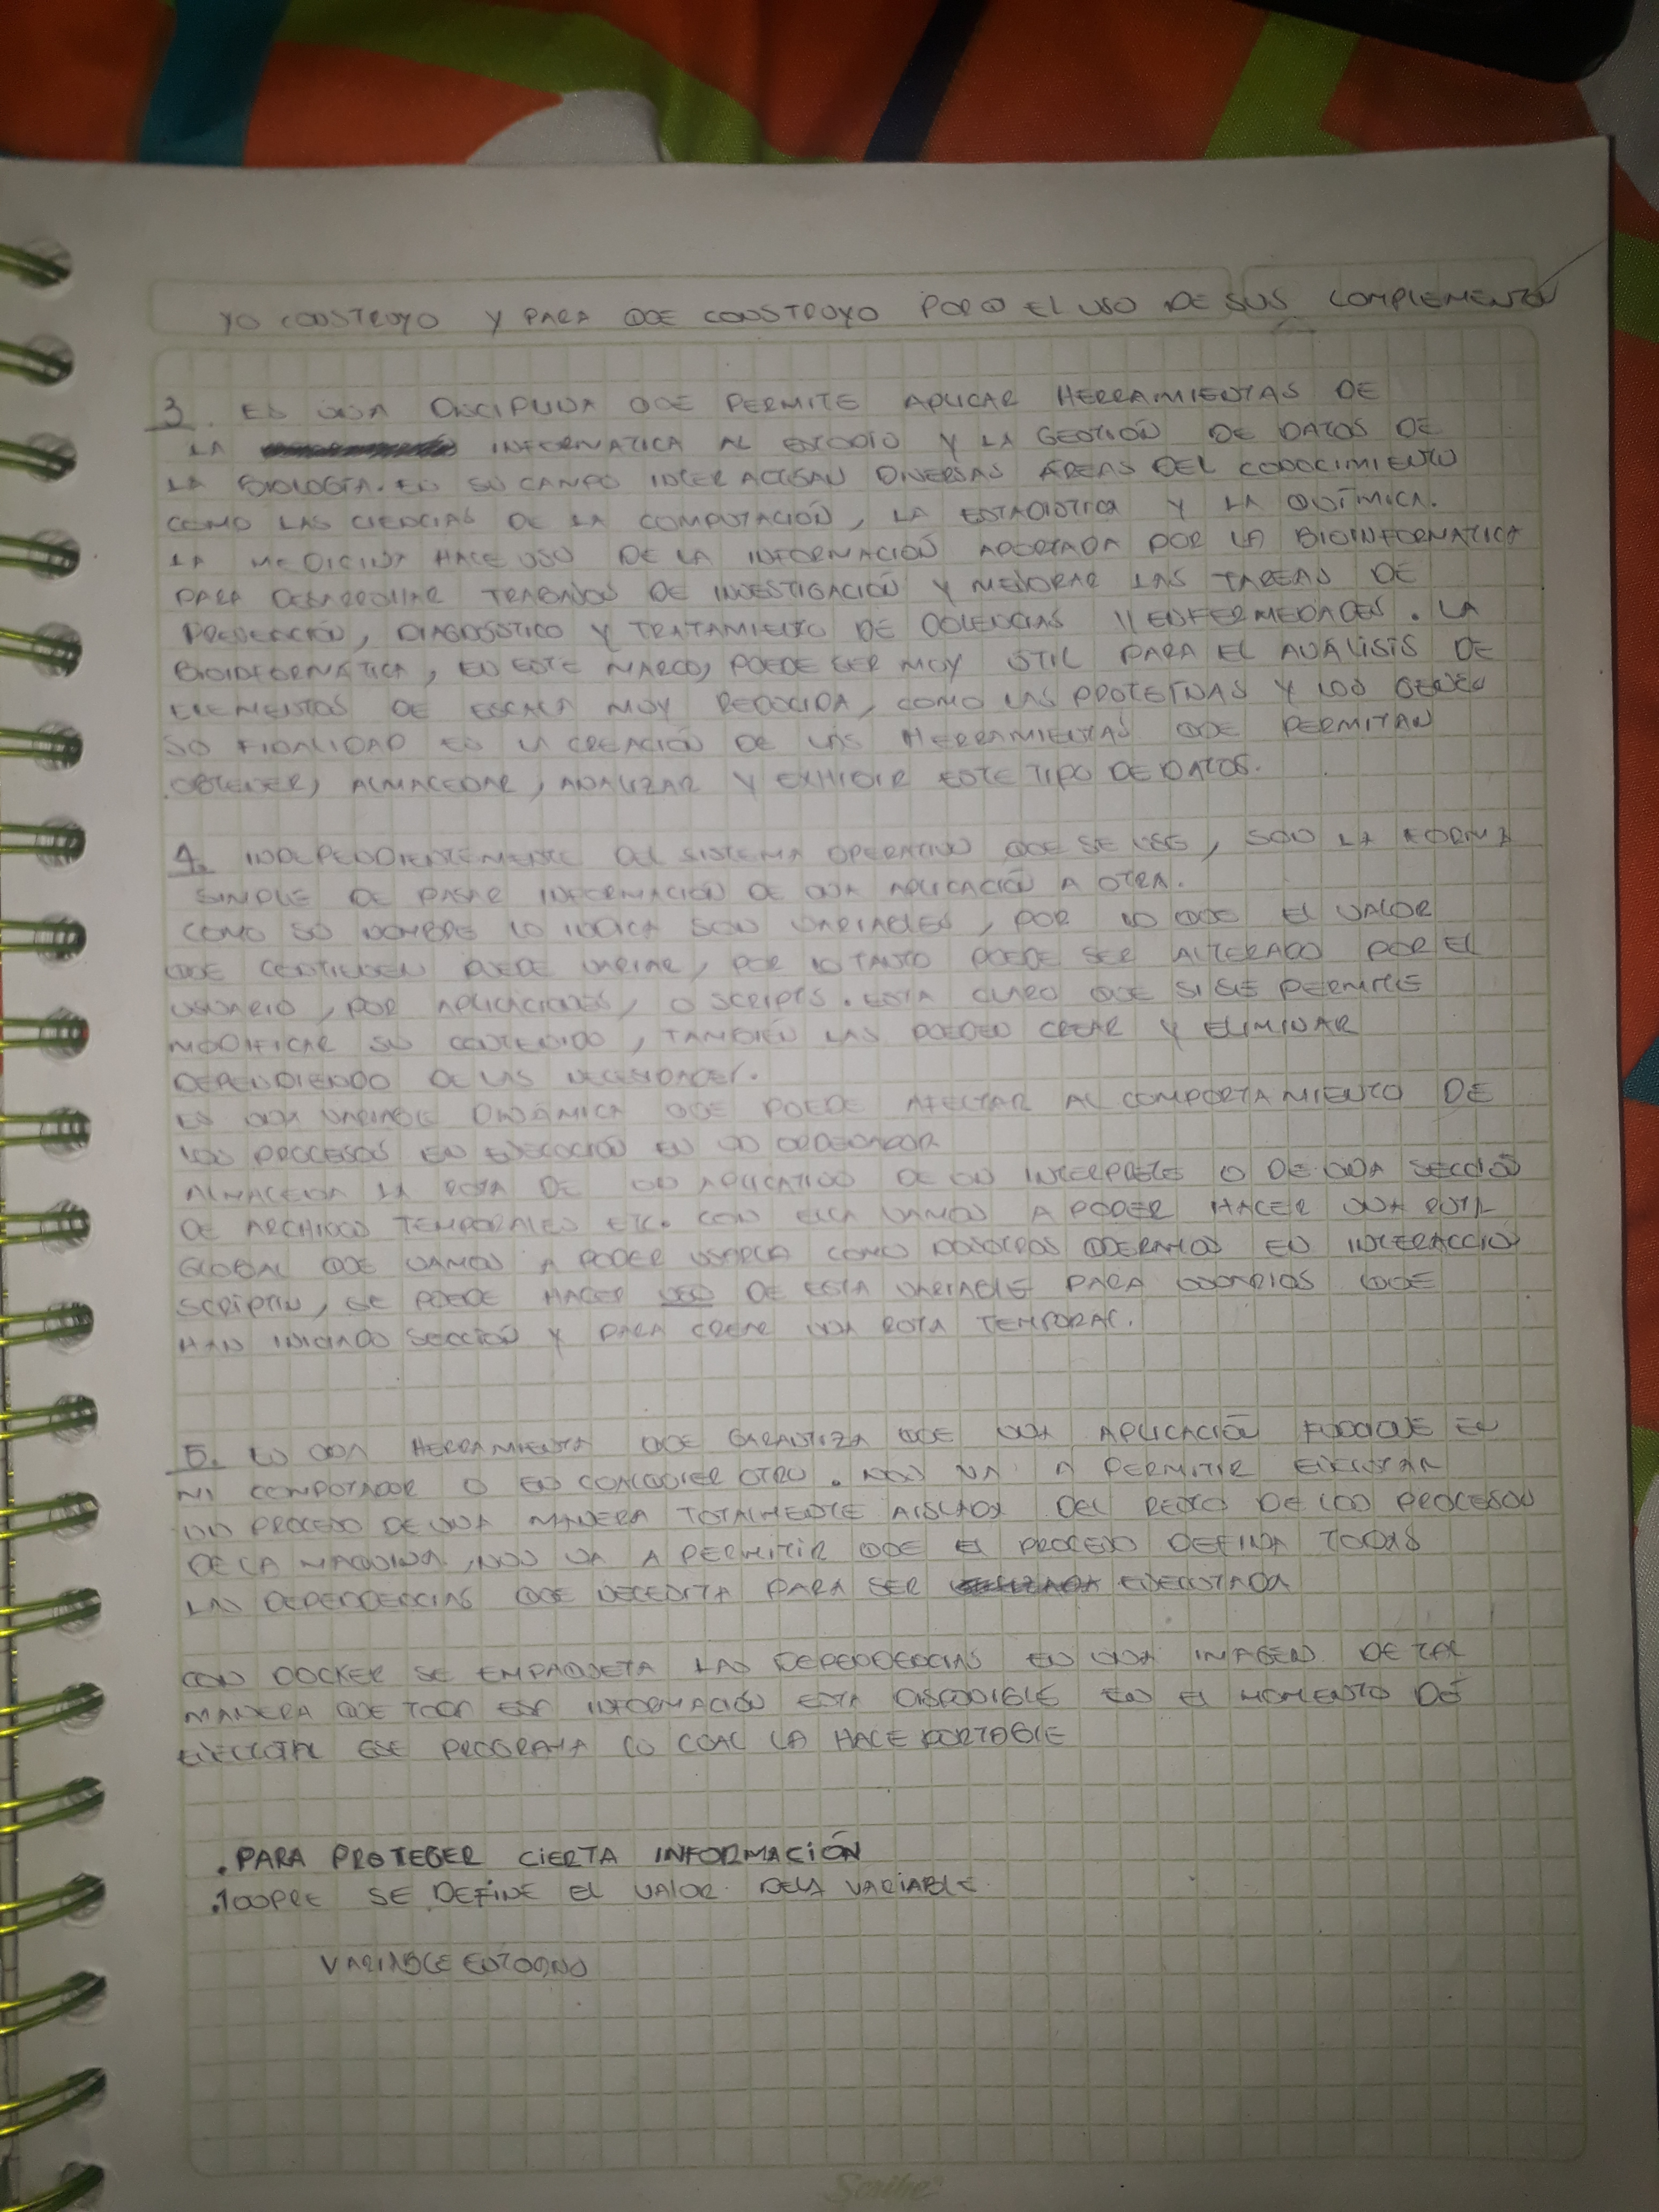 YO CONSTRUYO Y PARA QUE CONSTRUYO EL USO DE SUS COMPLEMENTOS
3. ES UNA DISCIPLINA QUE PERMITE APLICAR HERRAMIENTAS DE
LA INFORMATICA AL ESTUDIO Y LA GESTIÓN DE DATOS DE
LA BIOLOGÍA. EN SU CAMPO INTERACTUAN DIVERSAS ÁREAS DEL CONOCIMIENTO
COMO LAS CIENCIAS DE LA COMPUTACIÓN, LA ESTADISTICA Y LA QUÍMICA.
LA MEDICINA HACE USO DE LA INFORMACIÓN APORTADA POR LA BIOINFORMATICA
PARA DESARROLLAR TRABAJOS DE INVESTIGACIÓN Y MEJORAR LAS TAREAS DE
PREVENCIÓN, DIAGNÓSTICO Y TRATAMIENTO DE DOLENCIAS // ENFERMEDADES. LA
BIOINFORMÁTICA, EN ESTE MARCO, PUEDE SER MUY ÚTIL PARA EL ANALISIS DE
ELEMENTOS DE ESCALA MUY REDUCIDA, COMO LAS PROTEÍNAS Y LOS GENES
SU FINALIDAD ES LA CREACIÓN DE LAS HERRAMIENTAS QUE PERMITAN
OBTENER, ALMACENAR, ANALIZAR Y EXHIBIR ESTE TIPO DE DATOS.
4. INDEPENDIENTEMENTE DEL SISTEMA OPERATIVO QUE SE USE, SON LA FORMA
SIMPLE DE PASAR INFORMACIÓN DE UNA APLICACIÓN A OTRA.
COMO SU NOMBRE LO INDICA SON VARIABLES, POR LO QUE EL VALOR
QUE CONTIENEN PUEDE VARIAR, POR LO TANTO PUEDE SER ALTERADO POR EL
USUARIO, POR APLICACIONES, O SCRIPTS. ESTA CLARO QUE SI SE PERMITE
MODIFICAR SU CONTENIDO, TAMBIÉN LAS PUEDEN CREAR Y ELIMINAR
DEPENDIENDO DE LAS NECESIDADES.
ES UNA VARIABLE DINÁMICA QUE PUEDE AFECTAR AL COMPORTAMIENTO DE
LOS PROCESOS EN EJECUCIÓN EN UN ORDENADOR
ALMACENA LA RUTA DE UN APLICATIVO DE UN INTERPRETE O DE UNA SECCIÓN
DE ARCHIVOS TEMPORALES ETC. CON ELLA VAMOS A PODER HACER UNA RUTA
GLOBAL QUE VAMOS A PODER USARLA COMO NOSOTROS QUERAMOS EN INTERACCIÓN
SCRIPTIN, SE PUEDE HACER USO DE ESTA VARIABLE PARA USUARIOS QUE
HAN INICIADO SECCIÓN Y PARA CREAR UNA RUTA TEMPORAL.
5. ES UNA HERRAMIENTA QUE GARANTIZA QUE UNA APLICACIÓN FUNCIONE EN
MI COMPUTADOR O EN CUALQUIER OTRO. NOS VA A PERMITIR EJECUTAR
UN PROCESO DE UNA MANERA TOTALMENTE AISLADA DEL RESTO DE LOS PROCESOS
DE LA MAQUINA, NOS VA A PERMITIR QUE EL PROCESO DEFINA TODAS
LAS DEPENDENCIAS QUE NECESITA PARA SER EJECUTADA
CON DOCKER SE EMPAQUETA LAS DEPENDENCIAS EN UNA IMAGEN DE TAL
MANERA QUE TODA ESA INFORMACIÓN ESTA DISPONIBLE EN EL MOMENTO DE
EJECUTAR ESE PROGRAMA LO CUAL LA HACE PORTABLE
. PARA PROTEGER CIERTA INFORMACIÓN
SE DEFINE EL VALOR DE LA VARIABLE
VARIABLE ENTORNO
Scribe